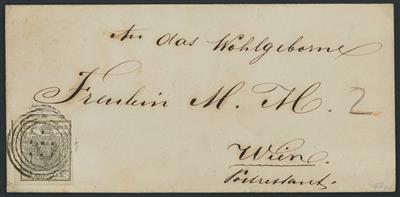 An das Wohlgeborne
Freulein M. M. 2
Wien.
Postrestant.